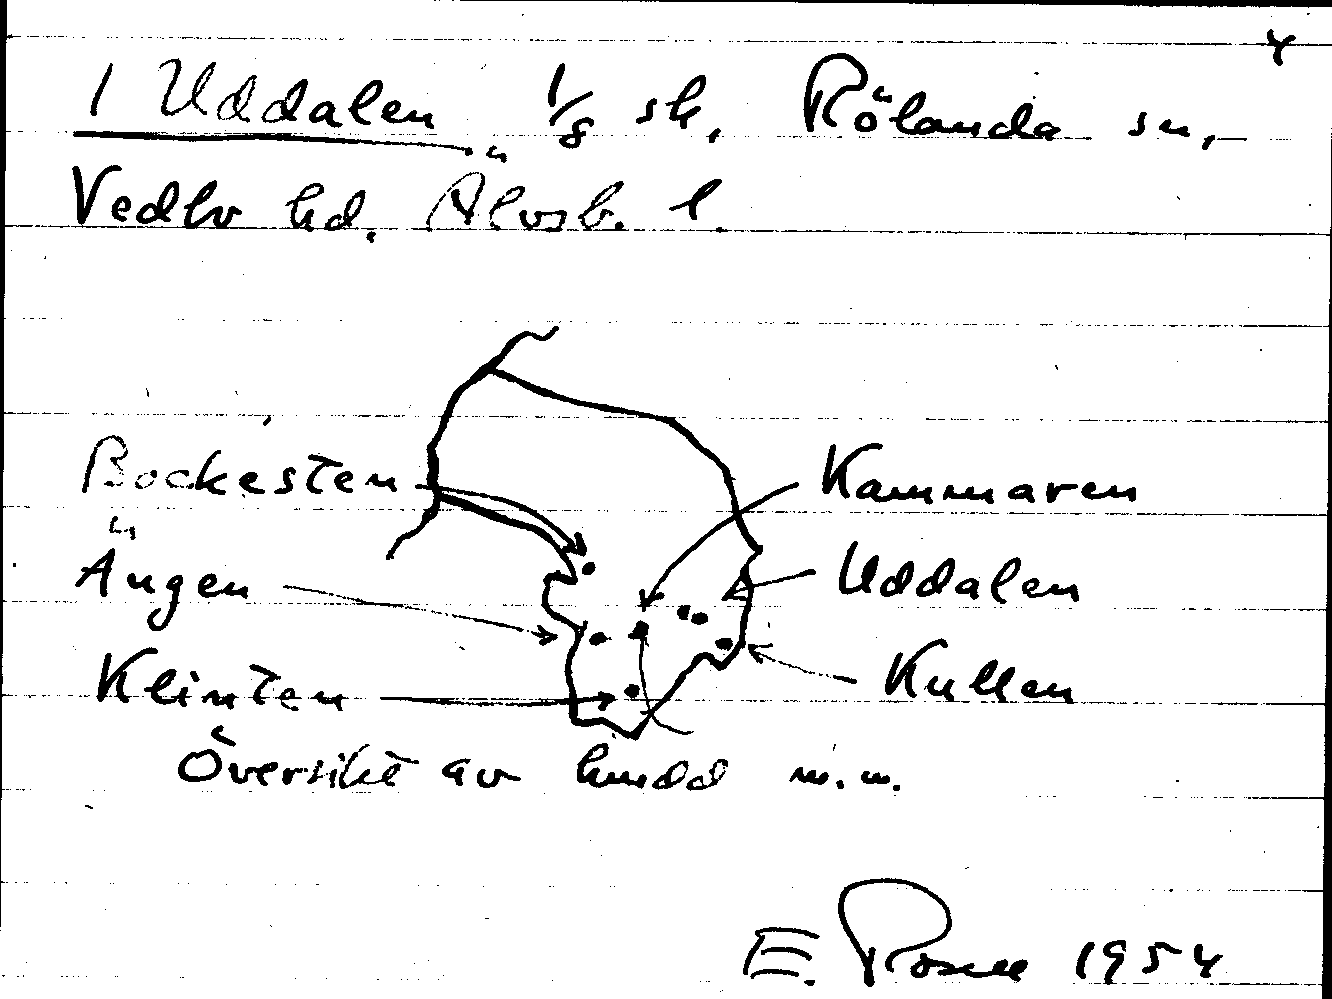 4
1 Uddalen 1/8 sk. Rölanda sn.
Vedbo hd. Älvsb. l.
Bockesten
Kammaren
Ängen
Uddalen
Klinten
Kullen
Översikt av m.m.
E. 1954